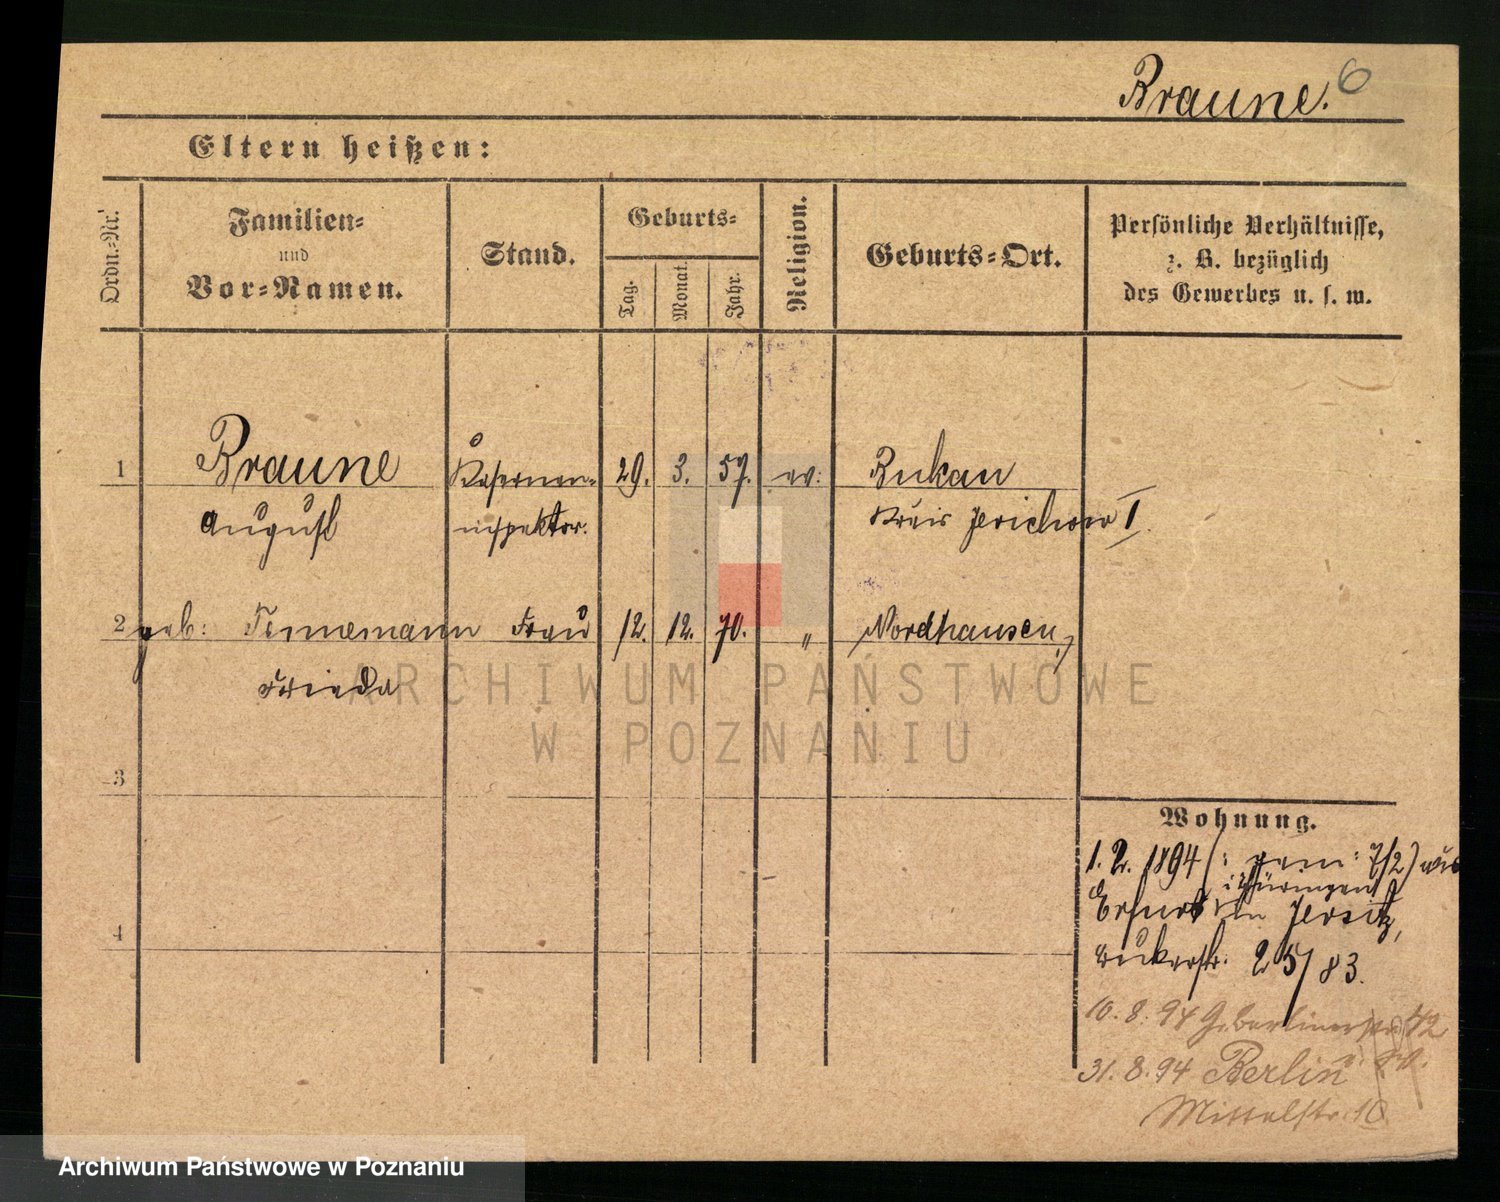 Braune. 6
Eltern heißen:
Ordn.-Nr.
Familien-
und
Vor-Namen.
Stand.
Geburts-
Tag.
Monat.
Jahr.
Religion.
Geburts-Ort.
Persönliche Verhältnisse,
z. B. bezüglich
des Gewerbes u. s. w.
1 Braune Kasernen- 29. 3. 57. ev: Bukau
August inspektor. Kreis Jerichow I.
2 geb: Frau 12. 12. 70. " Nordhausen
Frieda
ARCHIWUM PAŃSTWOWE
W POZNANIU
3
4
Wohnung.
1. 2. 1894 (: gem: 7/2) aus
i Thüringen
Erfurt in Jersitz,
25/83.
10. 8. 94 Gr. Berlinerstr. 42
31. 8. 94 Berlin
Mittelstr. 10
Archiwum Państwowe w Poznaniu